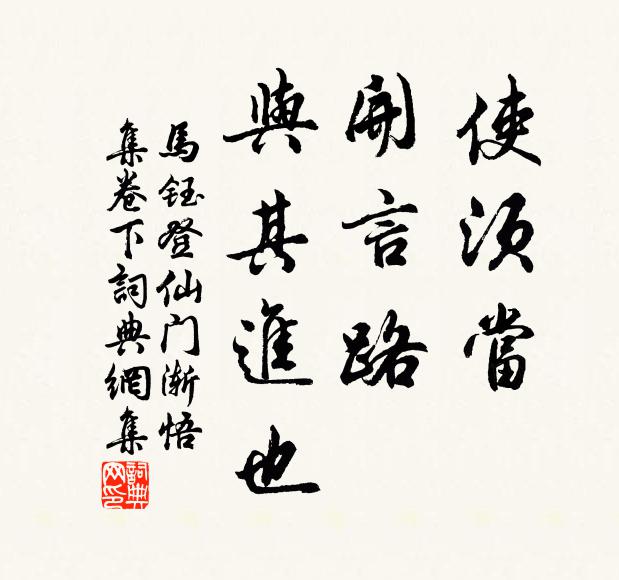 使須當
開言路
與其進也
馬鈺登仙门漸悟
集卷下詞典網集
詞典网印